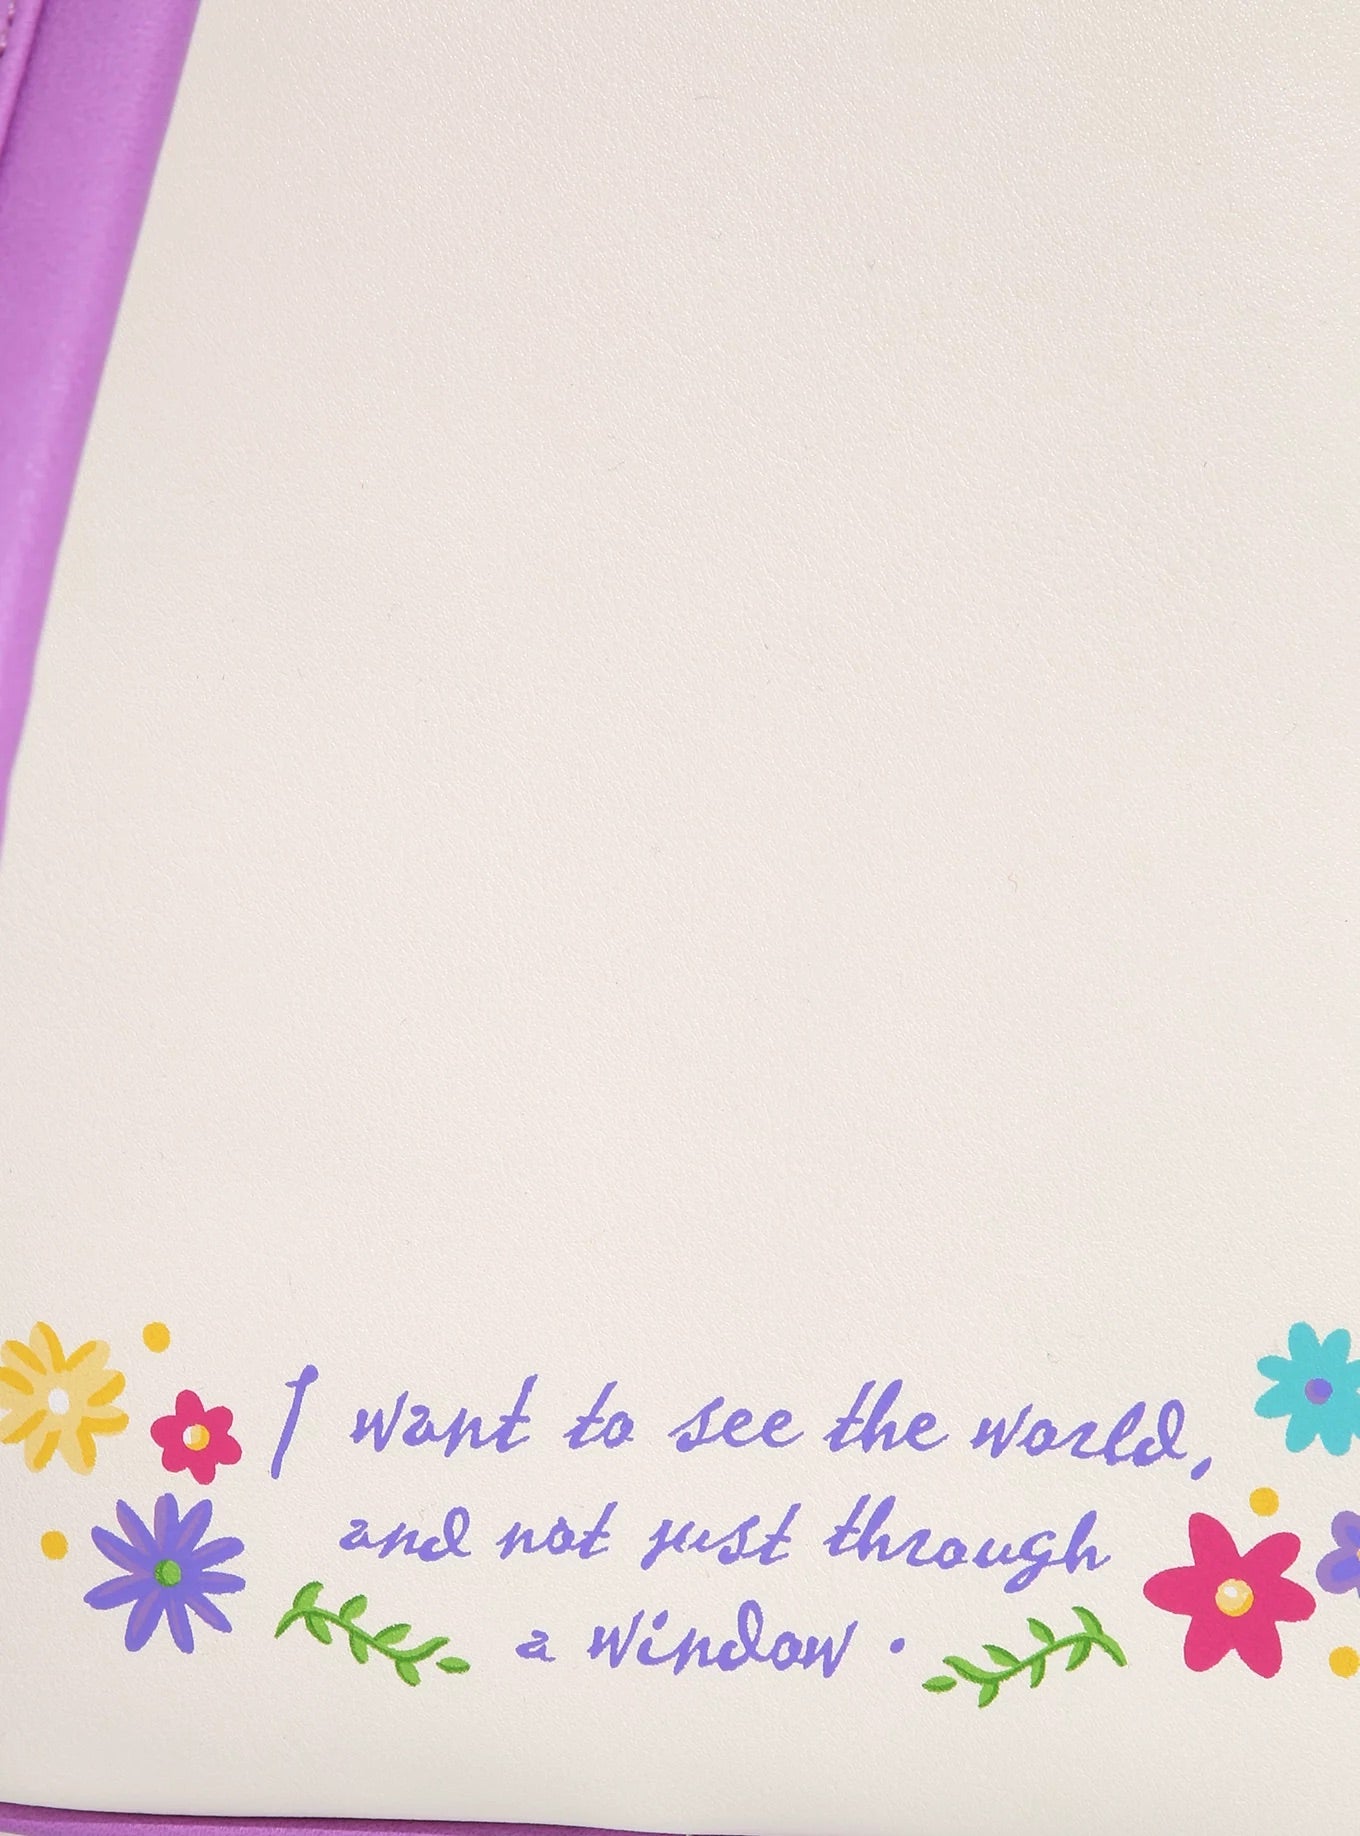 I want to see the world,
and not just through
a window.